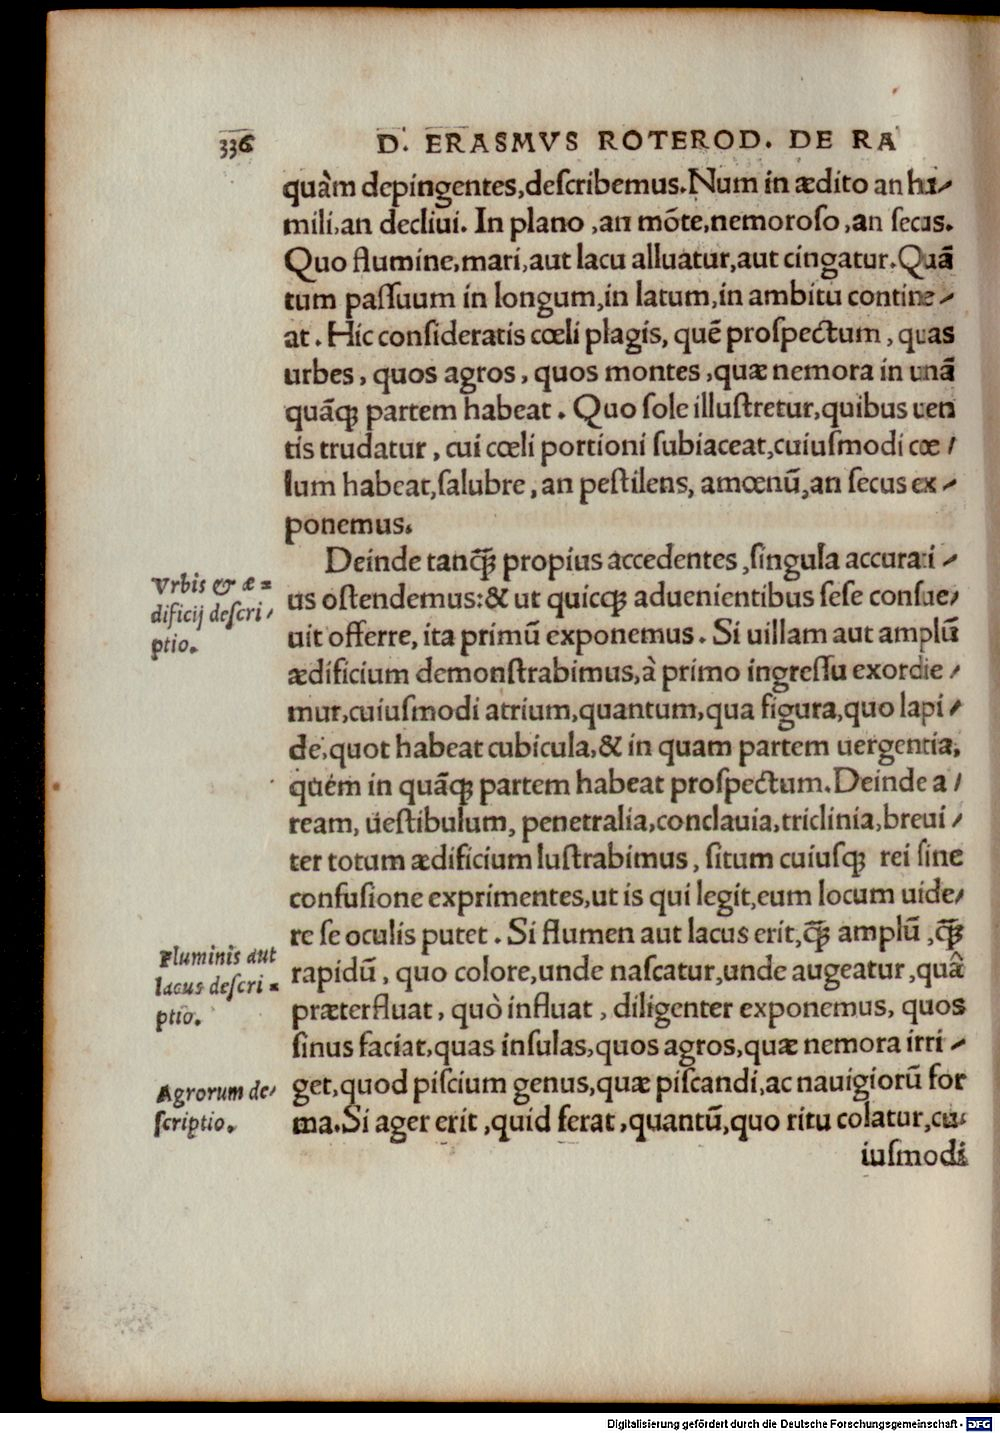 336 D. ERASMVS ROTEROD. DE RA
quàm depingentes,describemus.Num in ædito an hu-
mili,an decliui. In plano ,an mōte,nemoroso ,an secus.
Quo flumine,mari,aut lacu alluatur,aut cingatur.Quā
tum passuum in longum,in latum,in ambitu contine-
at. Hic consideratis cœli plagis, quē prospectum, quas
urbes, quos agros, quos montes ,quæ nemora in unā
quāq; partem habeat. Quo sole illustretur,quibus uen
tis trudatur, cui cœli portioni subiaceat,cuiusmodi cœ-
lum habeat,salubre, an pestilens, amœnū,an secus ex-
ponemus.
Deinde tanq̄; propius accedentes ,singula accurati-
us ostendemus:& ut quicq; aduenientibus sese consue-
uit offerre, ita primū exponemus. Si uillam aut amplū
ædificium demonstrabimus,à primo ingressu exordie-
mur,cuiusmodi atrium,quantum,qua figura,quo lapi-
de,quot habeat cubicula,& in quam partem uergentia,
quem in quāq; partem habeat prospectum.Deinde a-
ream, uestibulum, penetralia,conclauia,triclinia,breui-
ter totum ædificium lustrabimus, situm cuiusq; rei sine
confusione exprimentes,ut is qui legit,eum locum uide-
re se oculis putet. Si flumen aut lacus erit,q̄; amplū ,q̄;
rapidū, quo colore,unde nascatur,unde augeatur ,quâ
præterfluat, quò influat, diligenter exponemus, quos
sinus faciat,quas insulas,quos agros,quæ nemora irri-
get,quod piscium genus,quæ piscandi,ac nauigiorū for
ma.Si ager erit ,quid ferat,quantū,quo ritu colatur,cu-
iusmodi
Vrbis & æ=
dificij descri-
ptio.
Fluminis aut
lacus descri=
ptio.
Agrorum de-
scriptio.
Digitalisierung gefördert durch die Deutsche Forschungsgemeinschaft - DFG